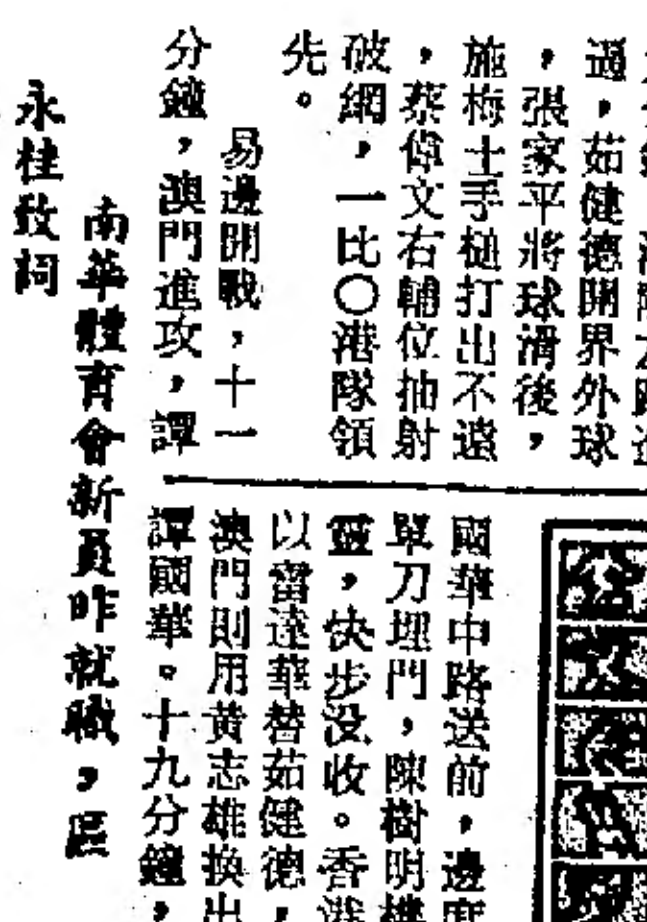 過，茹健德開界外球
，張家平將球滑後，
施梅士手槌打出不遠
，蔡偉文右輔位抽射
破網，一比〇港隊領
先。
易邊開戰，十一
分鐘，澳門進攻，譚
國華中路送前，邊
單刀埋門，陳樹明機
靈，快步没收。香港
以雷達華替茹健德，
澳門則用黃志雄換出
譚國華。十九分鐘，
南華體育會新員昨就職，區
永桂致詞